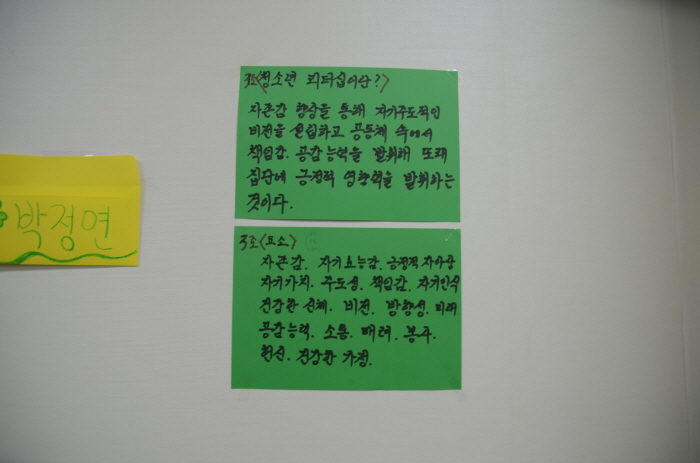 박정연
3조 <청소년 리더십이란?>
자존감 향상을 통해 자기주도적인
비전을 설립하고 공동체 속에서
책임감, 공감능력을 발휘해 또래
집단에 긍정적 영향력을 발휘하는
것이다.
3조 <요소>
자존감, 자기효능감, 긍정적 자아상
자기가치, 주도성, 책임감, 자기인식
건강한 신체, 비전, 방향성, 미래
공감능력, 소통, 배려, 봉사,
헌신, 건강한 가정.